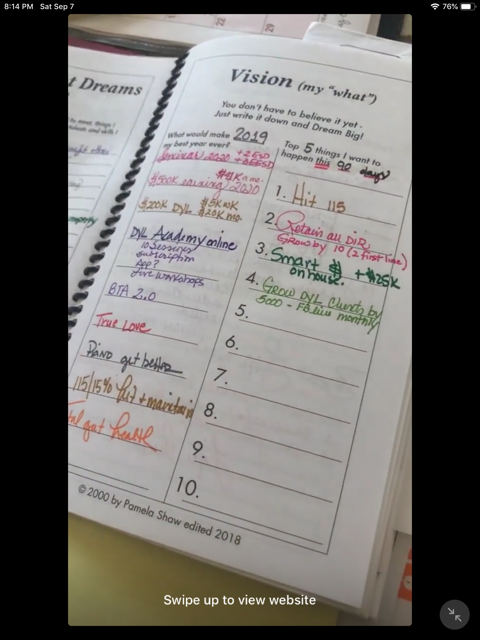 8:14 PM Sat Sep 7
76%
t Dreams
Vision (my "what")
You don't have to believe it yet -
Just write it down and Dream Big!
What would make 2019
my best year ever?
Seminar 2020
$500K earning 2020
$200K DYL
DYL Academy online
subscription
App?
Live workshops
BTA 2.0
True Love
Piano get better
115/15% fit + maintain
gut health
Top 5 things I want to
happen this 90 days
1. Hit 115
2. Retain all DIR
Grow by 10 (2 first line)
3. Smart $ + $25K
on house.
4. Grow DYL clients by
5000 - FB live monthly
5.
6.
7.
8.
9.
10.
© 2000 by Pamela Shaw edited 2018
Swipe up to view website